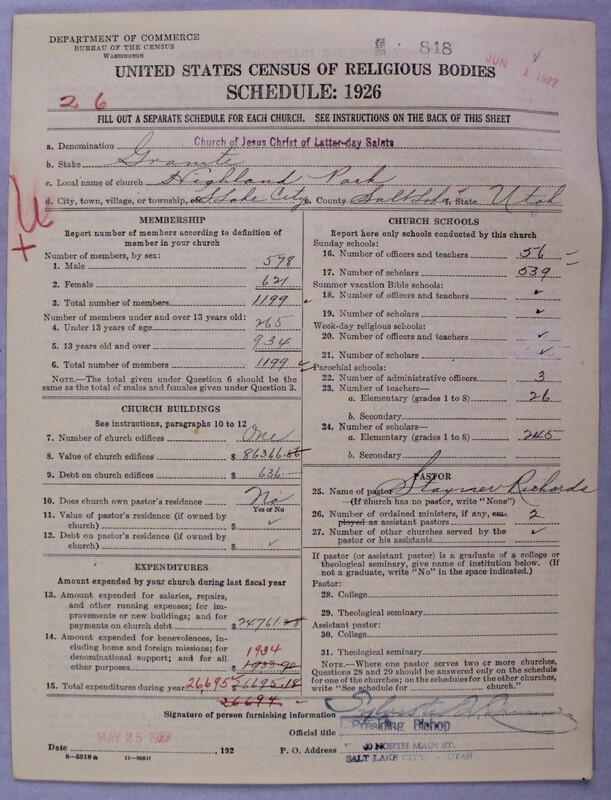 DEPARTMENT OF COMMERCE
BUREAU OF THE CENSUS
WASHINGTON
848
JUN 1 1927
UNITED STATES CENSUS OF RELIGIOUS BODIES
SCHEDULE: 1926
26
FILL OUT A SEPARATE SCHEDULE FOR EACH CHURCH. SEE INSTRUCTIONS ON THE BACK OF THIS SHEET
a. Denomination Church of Jesus Christ of Latter-day Saints
b. Stake Granite
c. Local name of church Highland Park
d. City, town, village, or township, or S. Lake City e. County Salt Lake f. State Utah
MEMBERSHIP
Report number of members according to definition of
member in your church
Number of members, by sex:
1. Male 578
2. Female 621
3. Total number of members 1199
Number of members under and over 13 years old:
4. Under 13 years of age 265
5. 13 years old and over 934
6. Total number of members 1199
NOTE.—The total given under Question 6 should be
the same as the total of males and females given under Question 3.
CHURCH BUILDINGS
See instructions, paragraphs 10 to 12
7. Number of church edifices One
8. Value of church edifices $ 86366.
9. Debt on church edifices $ 636.—
10. Does church own pastor's residence No
Yes or No
11. Value of pastor's residence (if owned by
church) $ ✓
12. Debt on pastor's residence (if owned by
church) $ ✓
EXPENDITURES
Amount expended by your church during last fiscal year
13. Amount expended for salaries, repairs,
and other running expenses; for im-
provements or new buildings; and for
payments on church debt $ 24761
14. Amount expended for benevolences,
including home and foreign missions; for
denominational support; and for all
other purposes 1934
1933.90
15. Total expenditures during year 26,695 $ 26695.18
26694
CHURCH SCHOOLS
Report here only schools conducted by this church
Sunday schools:
16. Number of officers and teachers 56
17. Number of scholars 539
Summer vacation Bible schools:
18. Number of officers and teachers ✓
19. Number of scholars ✓
Week-day religious schools:
20. Number of officers and teachers ✓
21. Number of scholars ✓
Parochial schools:
22. Number of administrative officers 3
23. Number of teachers—
a. Elementary (grades 1 to 8) 26
b. Secondary
24. Number of scholars—
a. Elementary (grades 1 to 8) 245
b. Secondary
PASTOR
25. Name of pastor Stayner Richards
(If church has no pastor, write "None")
26. Number of ordained ministers, if any, em-
ployed as assistant pastors 2
27. Number of other churches served by the
pastor or his assistants ✓
If pastor (or assistant pastor) is a graduate of a college or
theological seminary, give name of institution below. (If
not a graduate, write "No" in the space indicated.)
Pastor:
28. College
29. Theological seminary
Assistant pastor:
30. College
31. Theological seminary
NOTE.—Where one pastor serves two or more churches,
Questions 28 and 29 should be answered only on the schedule
for one of the churches; on the schedules for the other churches,
write "See schedule for church."
Signature of person furnishing information Sylvester Q. Cannon
Official title Presiding Bishop
Date MAY 25 1927, 192 P. O. Address 40 NORTH MAIN ST.
SALT LAKE CITY, - UTAH
8—5318 a